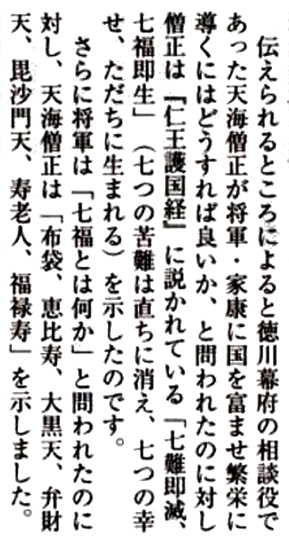 伝えられるところによると徳川幕府の相談役で
あった天海僧正が将軍・家康に国を富ませ繁栄に
導くにはどうすれば良いか、と問われたのに対し
僧正は『仁王護国経』に説かれている「七難即滅、
七福即生」（七つの苦難は直ちに消え、七つの幸
せ、ただちに生まれる）を示したのです。
さらに将軍は「七福とは何か」と問われたのに
対し、天海僧正は「布袋、恵比寿、大黒天、弁財
天、毘沙門天、寿老人、福禄寿」を示しました。